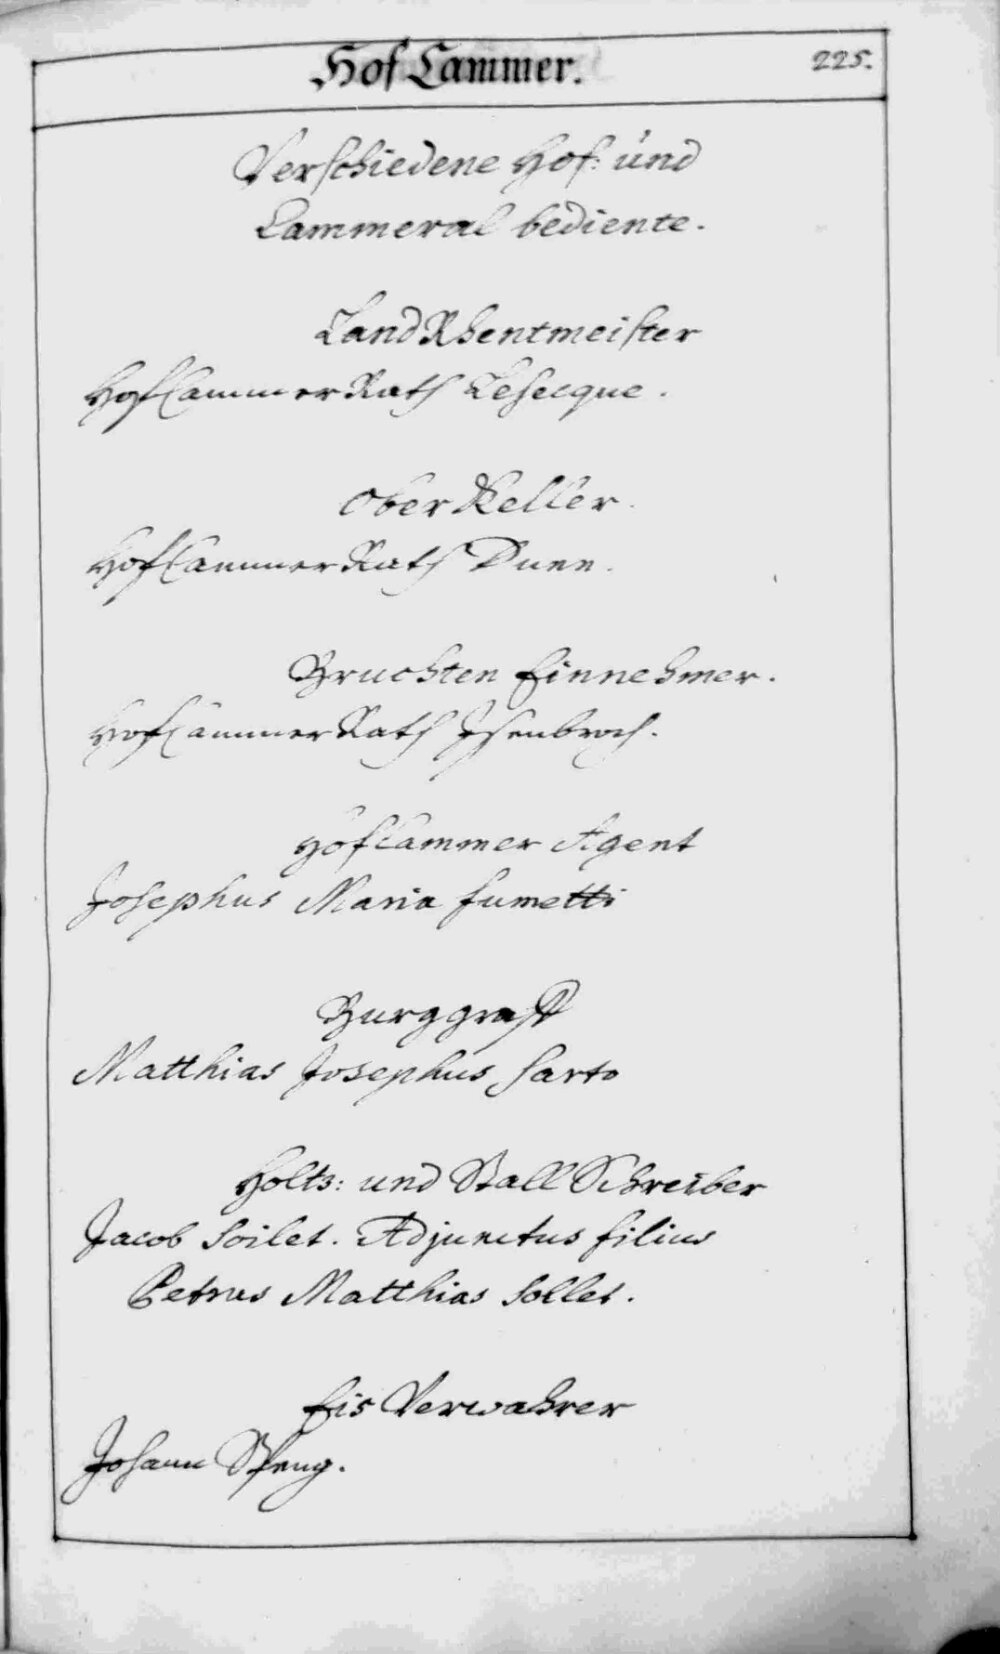 Hof Cammer.
225.
Verschiedene Hof: und
Cammeral bediente.
Land Rhentmeister
HofCammerRath Lesecque.
Ober Keller.
HofCammerRath Duen.
Bruchten Einnehmer.
HofCammerRath Isenbroch.
HofCammer Agent
Josephus Maria Fumetti
Burggraff
Matthias Josephus Sarto
Holtz: und Stall Schreiber
Jacob Soilet. Adjunctus filius
Petrus Matthias Sollet.
Eis Verwahrer
Johann